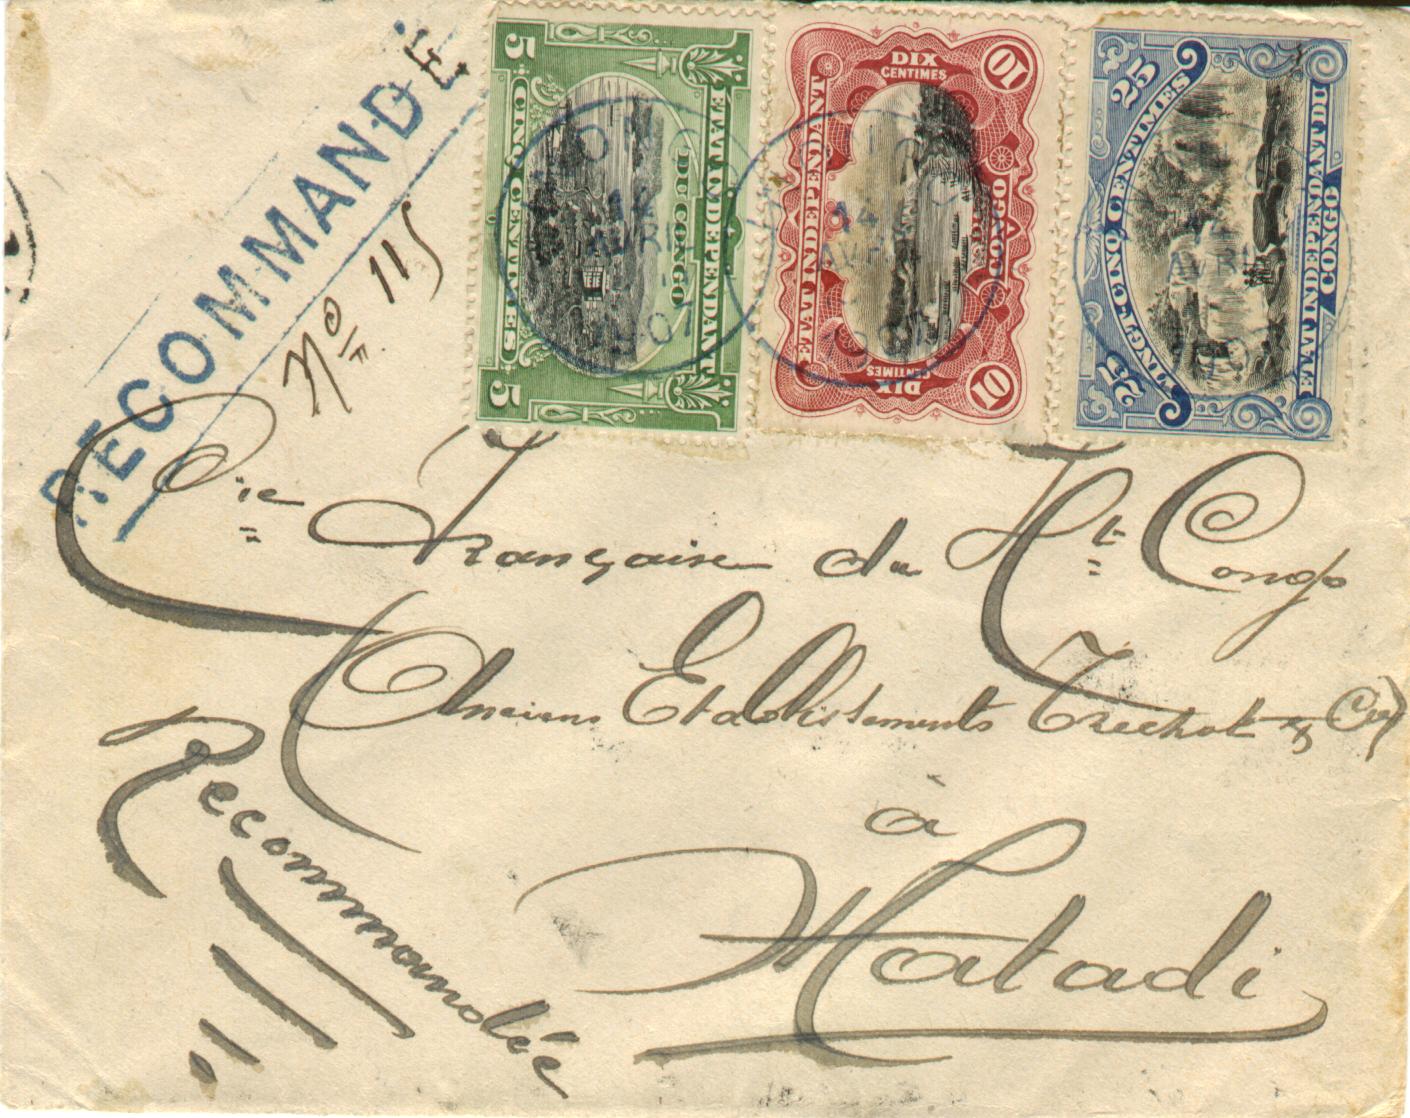 RECOMMANDE
No 115
5 5
CINQ CENTIMES
ETAT INDEPENDANT
DU CONGO
DIX
CENTIMES
10 10
ETAT INDEPENDANT
DU
CONGO
DIX
CENTIMES
25 25
VINGT-CINQ CENTIMES
ETAT INDEPENDANT DU
CONGO
14
AVRIL
1907
14
AVRI
AVRI
Cie Française du Ht Congo
Anciens Etablissements Trechot & Cie)
à
Matadi
Recommandée